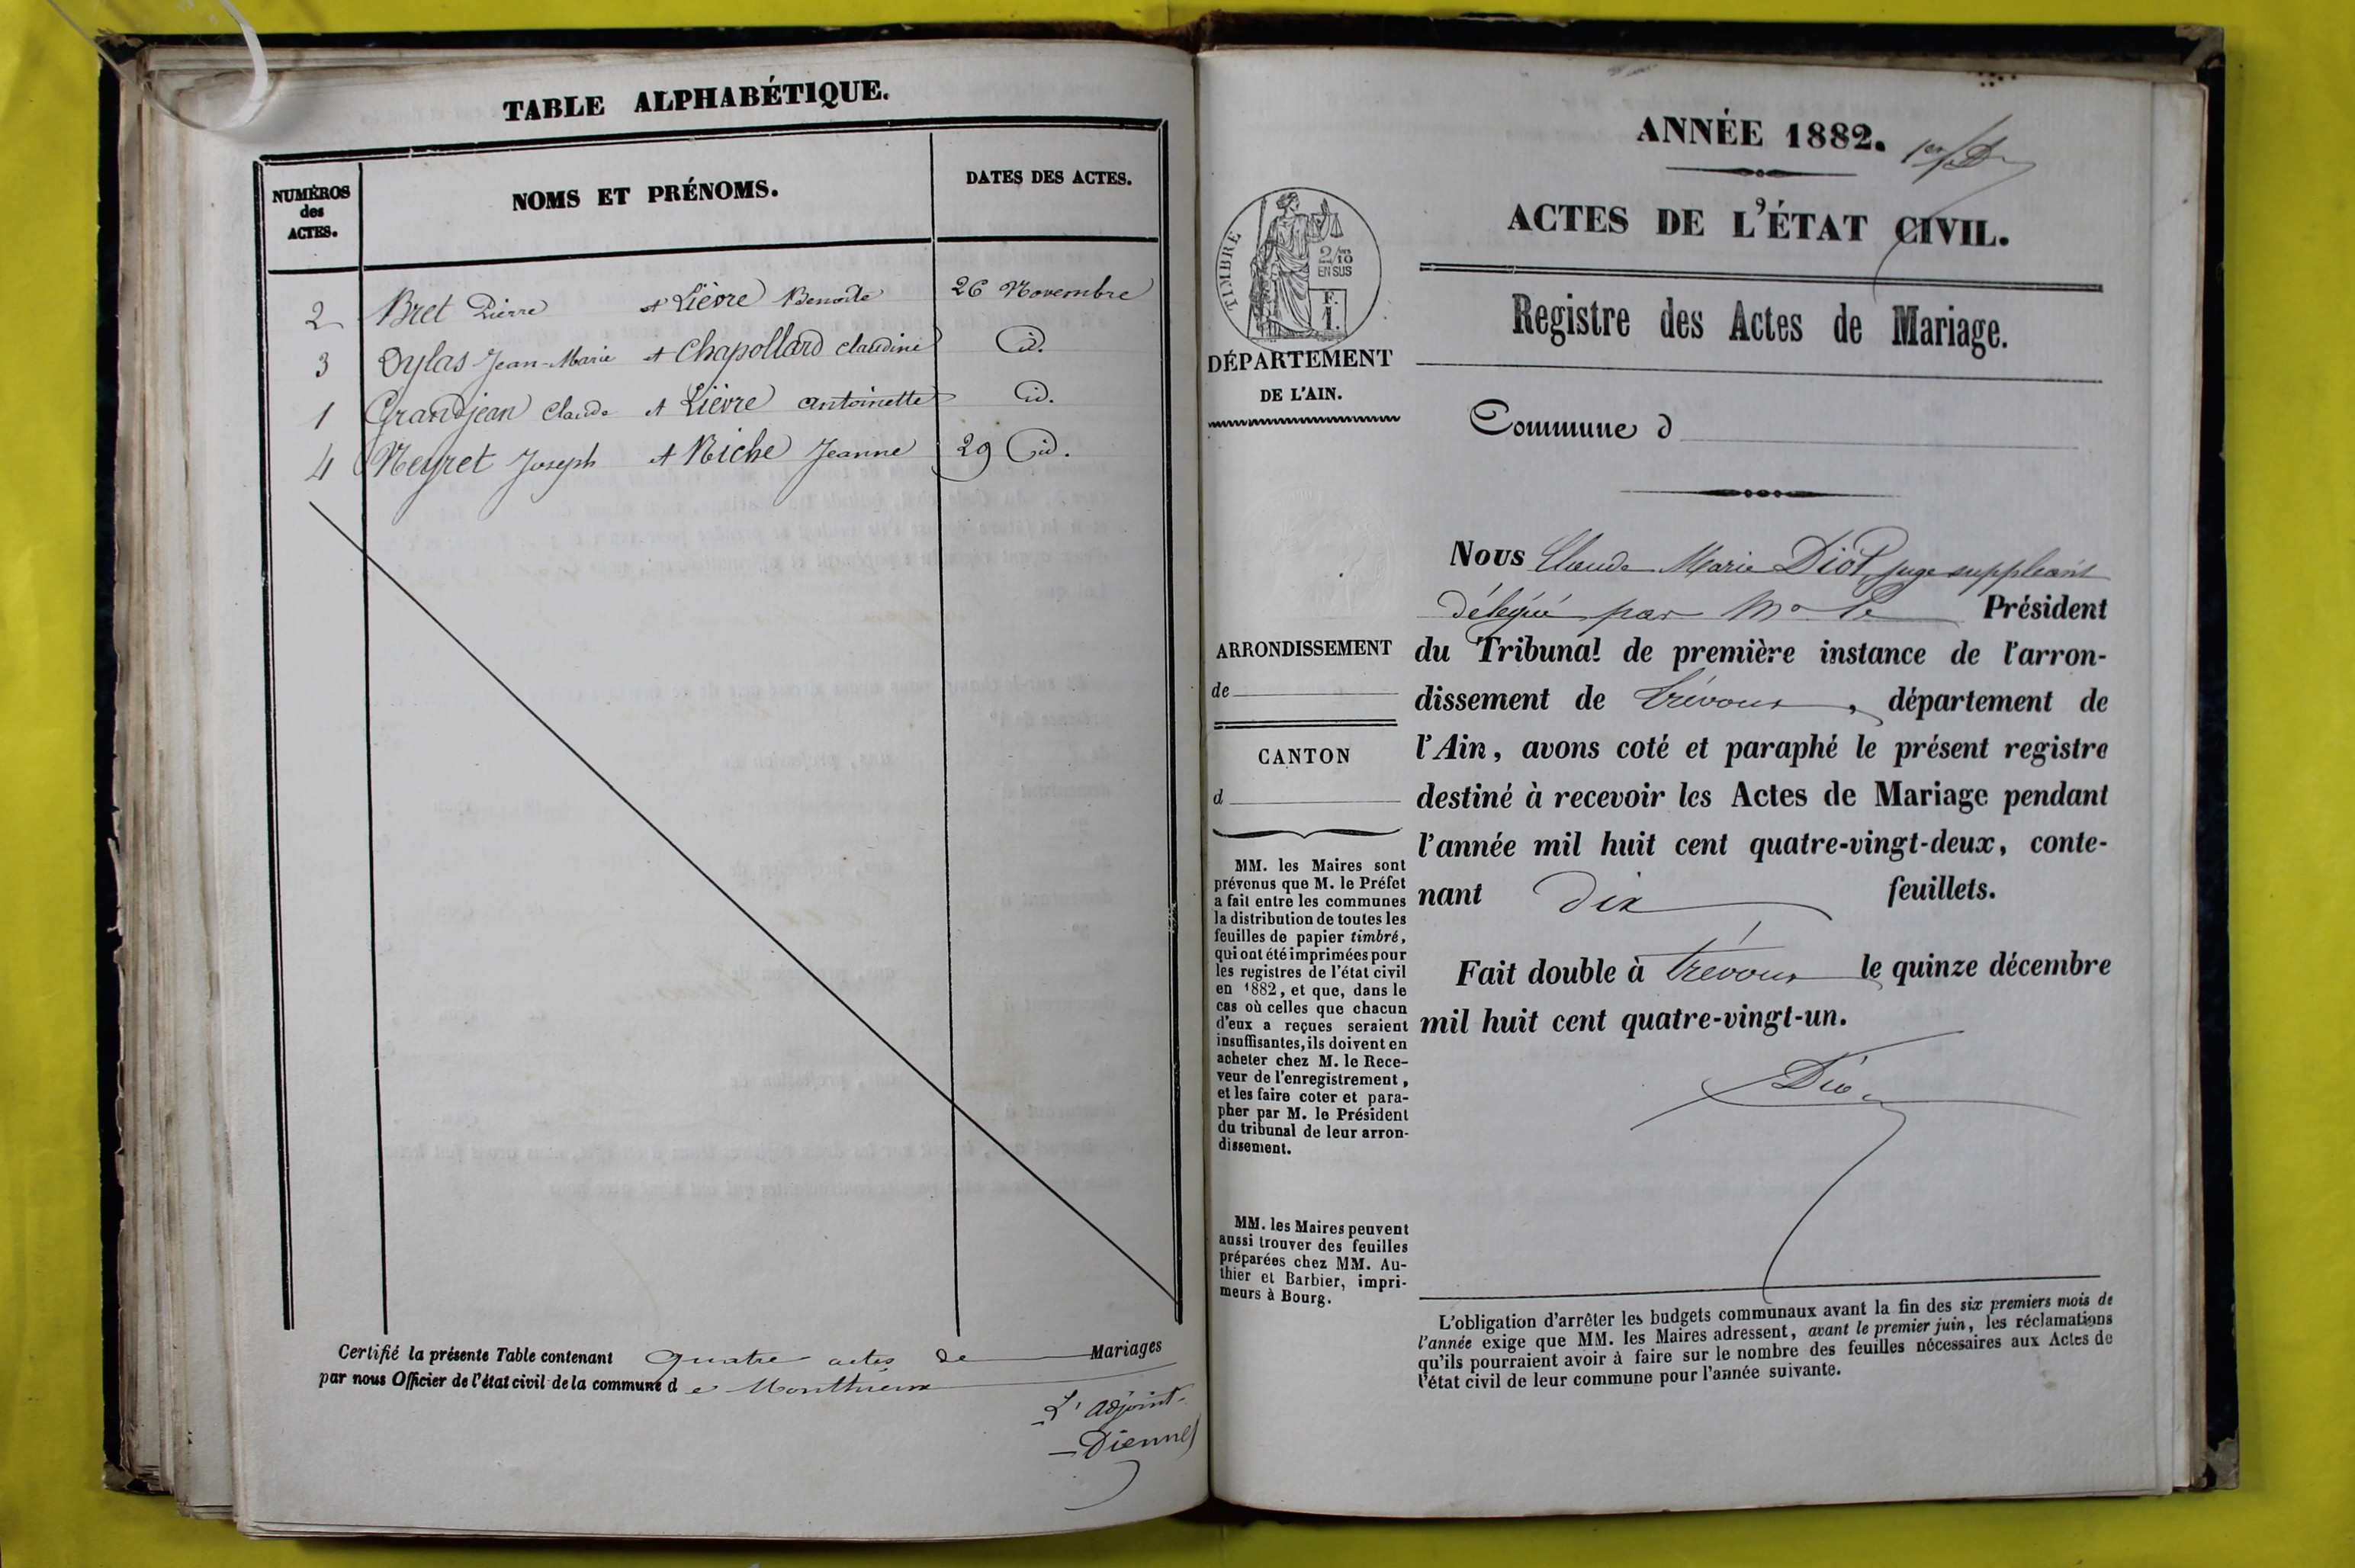 TABLE ALPHABÉTIQUE.
NUMÉROS
des
ACTES.
NOMS ET PRÉNOMS.
DATES DES ACTES.
2 Bret Pierre et Lièvre Benoite 26 Novembre
3 Dylas Jean-Marie et Chapolland Claudine id.
1 Grandjean Claude et Lièvre Antoinette id.
4 Neyret Joseph et Riche Jeanne 29 id.
Certifié la présente Table contenant quatre actes de Mariages
par nous Officier de l'état civil de la commune d e Monthieux
L'adjoint
ANNÉE 1882.
1er
ACTES DE L'ÉTAT CIVIL.
TIMBRE
2/10
EN SUS
F.
1.
DÉPARTEMENT
DE L'AIN.
Registre des Actes de Mariage.
Commune d
ARRONDISSEMENT
de
CANTON
d
MM. les Maires sont
prévenus que M. le Préfet
a fait entre les communes
la distribution de toutes les
feuilles de papier timbré,
qui ont été imprimées pour
les registres de l'état civil
en 1882, et que, dans le
cas où celles que chacun
d'eux a reçues seraient
insuffisantes, ils doivent en
acheter chez M. le Rece-
veur de l'enregistrement,
et les faire coter et para-
pher par M. le Président
du tribunal de leur arron-
dissement.
MM. les Maires peuvent
aussi trouver des feuilles
préparées chez MM. Au-
thier et Barbier, impri-
meurs à Bourg.
Nous Claude Marie Diot, juge suppléant
délégué par Mr le Président
du Tribunal de première instance de l'arron-
dissement de Trévoux, département de
l'Ain, avons coté et paraphé le présent registre
destiné à recevoir les Actes de Mariage pendant
l'année mil huit cent quatre-vingt-deux, conte-
nant dix feuillets.
Fait double à Trévoux le quinze décembre
mil huit cent quatre-vingt-un.
Diot
L'obligation d'arrêter les budgets communaux avant la fin des six premiers mois de
l'année exige que MM. les Maires adressent, avant le premier juin, les réclamations
qu'ils pourraient avoir à faire sur le nombre des feuilles nécessaires aux Actes de
l'état civil de leur commune pour l'année suivante.